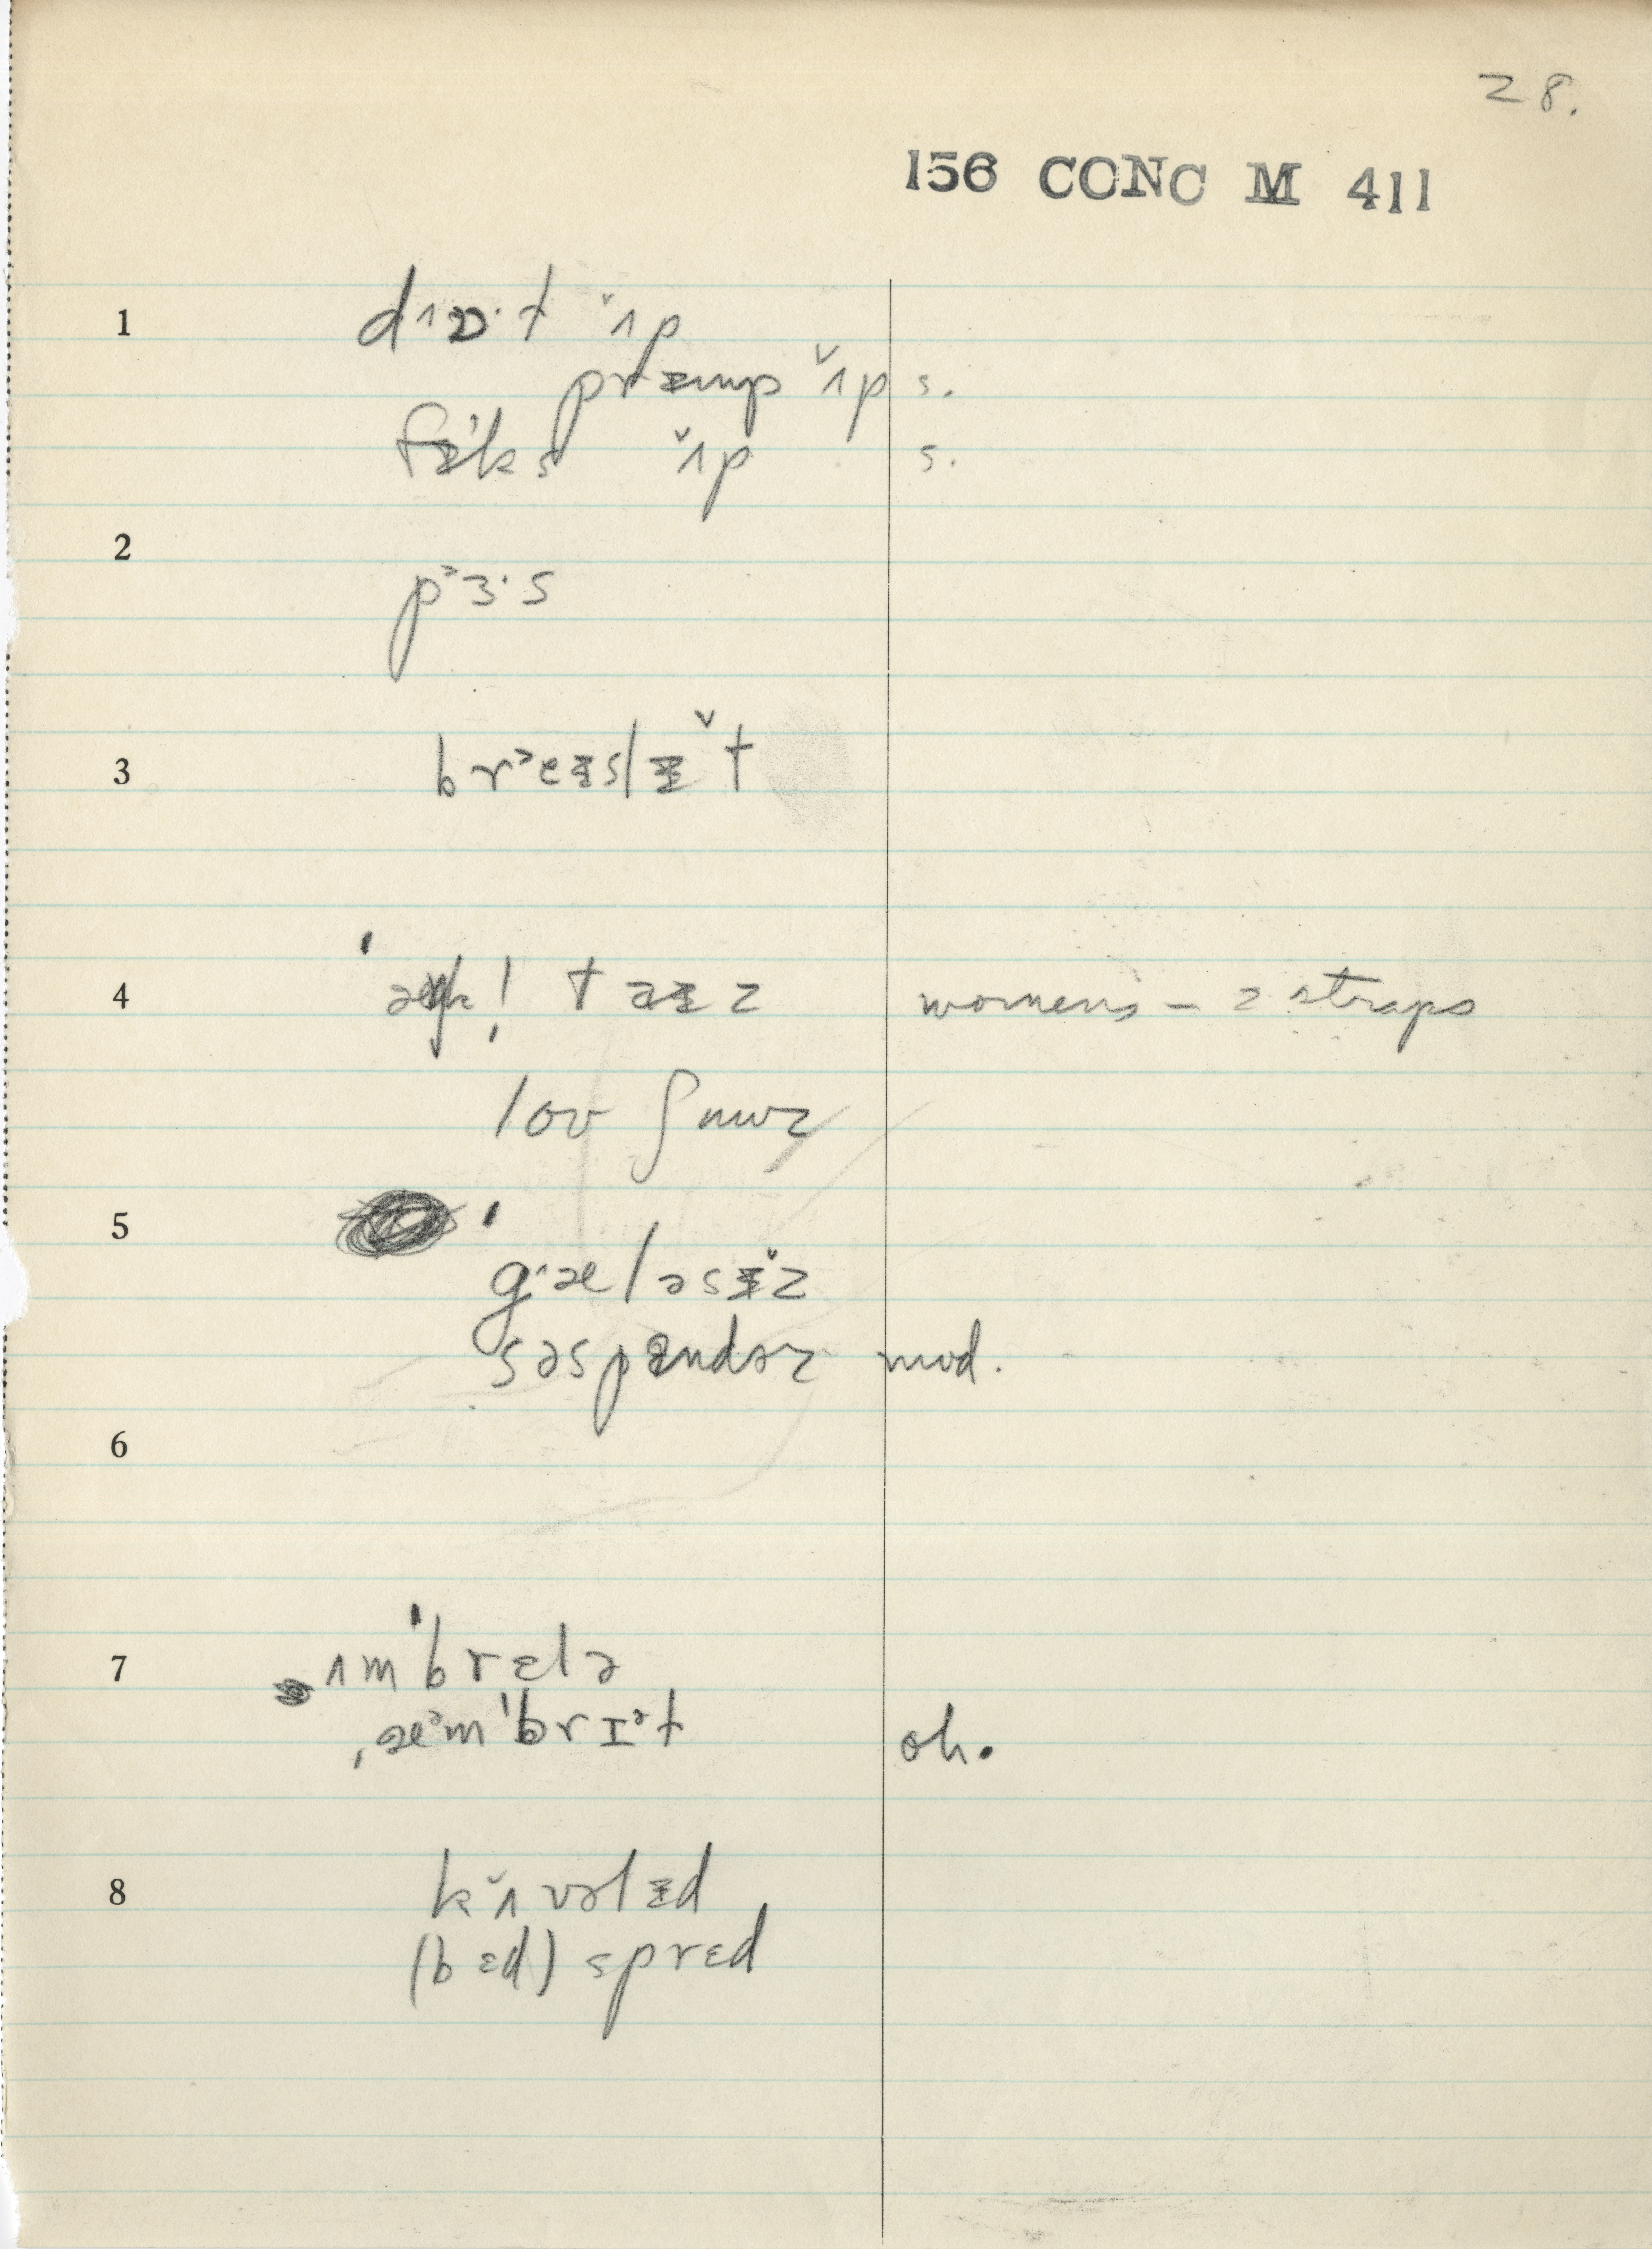 28.
156 CONC M 411
1 dʌɒ·t ˇʌp
prɪ̵mp ˇʌp s.
fɪ̵ks ˇʌp s.
2
p˃ɜ·s
3 br˃eɪ̵slɪ̵ˇt
4 taɪ̵z womens – 2 straps
loʊ ʃuuz
5
g˄æləsɪ̵ˇz
səspɛndɚz mod.
6
7 ʌmˈbrɛlə
ˌæ˃mˈbrɪᵊt oh.
8 kˇʌvəlɪ̵d
(bɛd) sprɛd